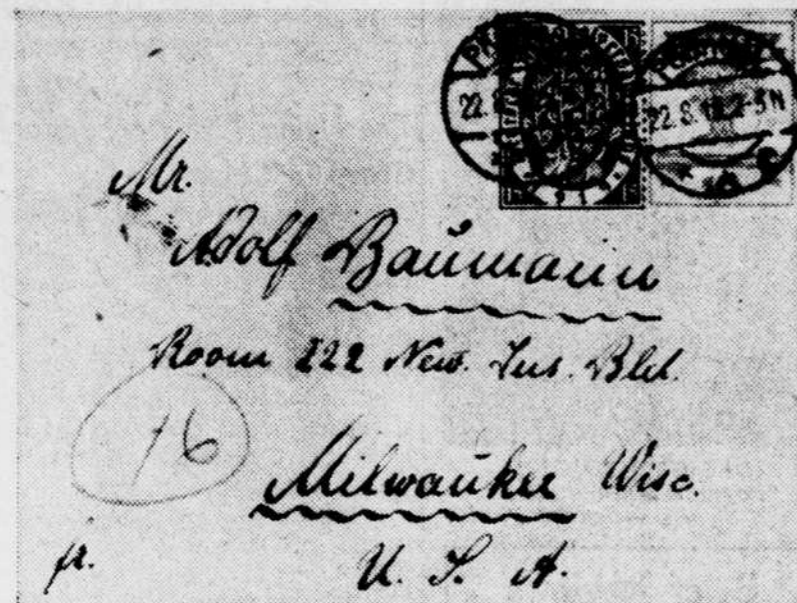 22.8.
22.8.19.2-3N
15
Mr.
Adolf Baumann
Room 222 New. Ins. Bld.
16
Milwaukee Wisc.
fr.
U. S. A.